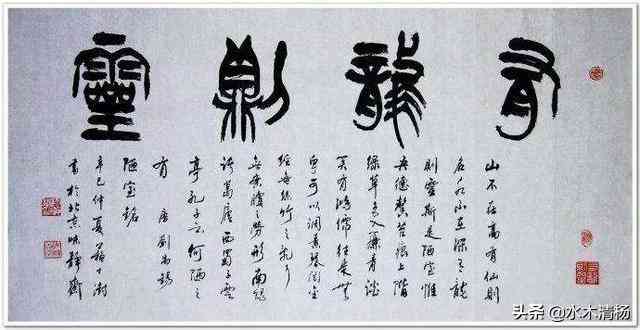 有龍則靈
山不在高有仙則
名水不在深有龍
則靈斯是陋室惟
吾德馨苔痕上階
綠草色入簾青談
笑有鴻儒往來無
白丁可以調素琴閱金
經無絲竹之亂耳
無案牘之勞形南陽
諸葛廬西蜀子雲
亭孔子云何陋之
有 唐劉禹錫
陋室銘
辛巳仲夏蘇士澍
書於北京味靜齋
头条 @水木清杨